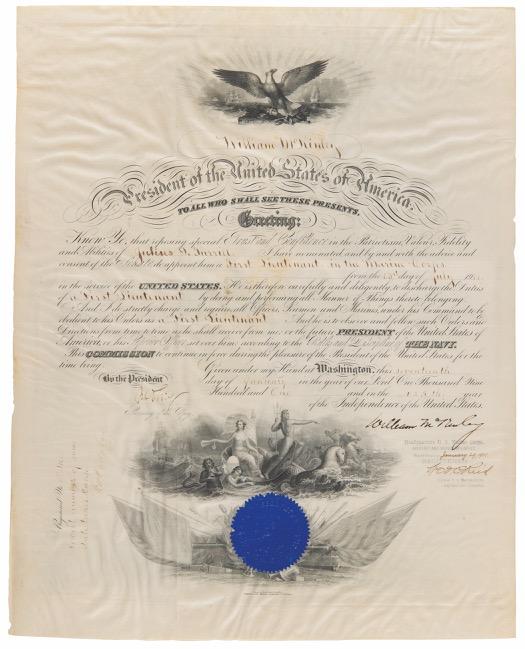 William McKinley
President of the United States of America,
TO ALL WHO SHALL SEE THESE PRESENTS,
Greeting:
Know Ye, that reposing special Trust and Confidence in the Patriotism, Valor, Fidelity
and Abilities of Julius I have nominated and by and with the advice and
consent of the Senate do appoint him a First Lieutenant in the Marine Corps
from the day of July
in the service of the UNITED STATES. He is therefore carefully and diligently to discharge the Duties
of a First Lieutenant by doing and performing all Manner of Things thereto belonging
And I do strictly charge and require all Officers, Seamen and Marines under his Command to be
obedient to his Orders as a First Lieutenant And he is to observe and follow such Orders and
Directions from time to time as he shall receive from me or the future PRESIDENT of the United States of
America, or his Superior Officer set over him, according to the Rules and Discipline of THE NAVY.
This COMMISSION to continue in force during the pleasure of the President of the United States for the
time being
Given under my Hand at Washington, this seventeenth
By the President
day of January in the year of our Lord One Thousand Nine
Hundred and One and in the 125th year
of the Independence of the United States.
Secretary of the Navy.
William McKinley
January